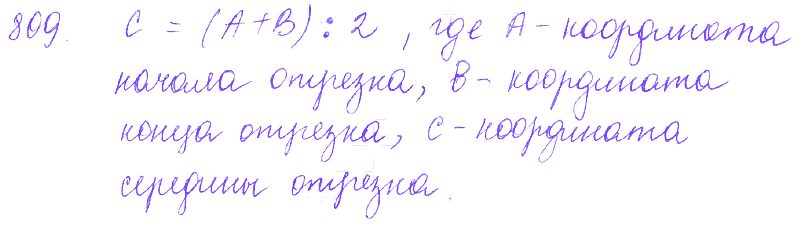 809. C = (A+B) : 2, где A - координата
начала отрезка, B - координата
конца отрезка, C - координата
середины отрезка.